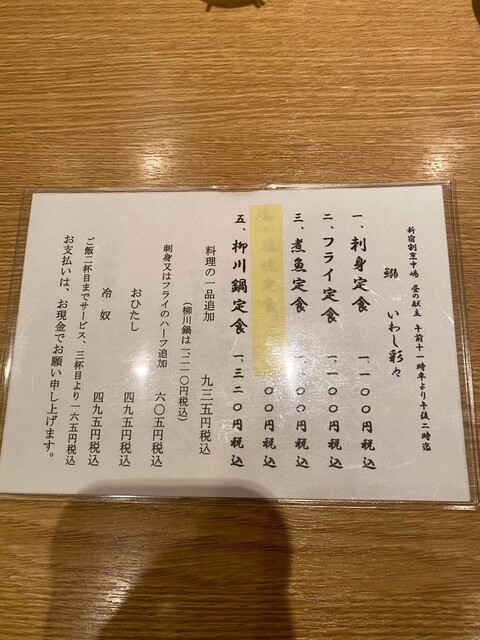 新宿割烹中嶋 昼の献立 午前十一時半より午後二時迄
鰯 いわし彩々
一、刺身定食 一、一〇〇円税込
二、フライ定食 一、一〇〇円税込
三、煮魚定食 一、一〇〇円税込
塩焼定食 〇〇円税込
五、柳川鍋定食 一、三二〇円税込
料理の一品追加 九三五円税込
(柳川鍋は一、二一〇円税込)
刺身又はフライのハーフ追加 六〇五円税込
おひたし 四九五円税込
冷奴 四九五円税込
ご飯二杯目までサービス、三杯目より一六五円税込
お支払いは、お現金でお願い申し上げます。